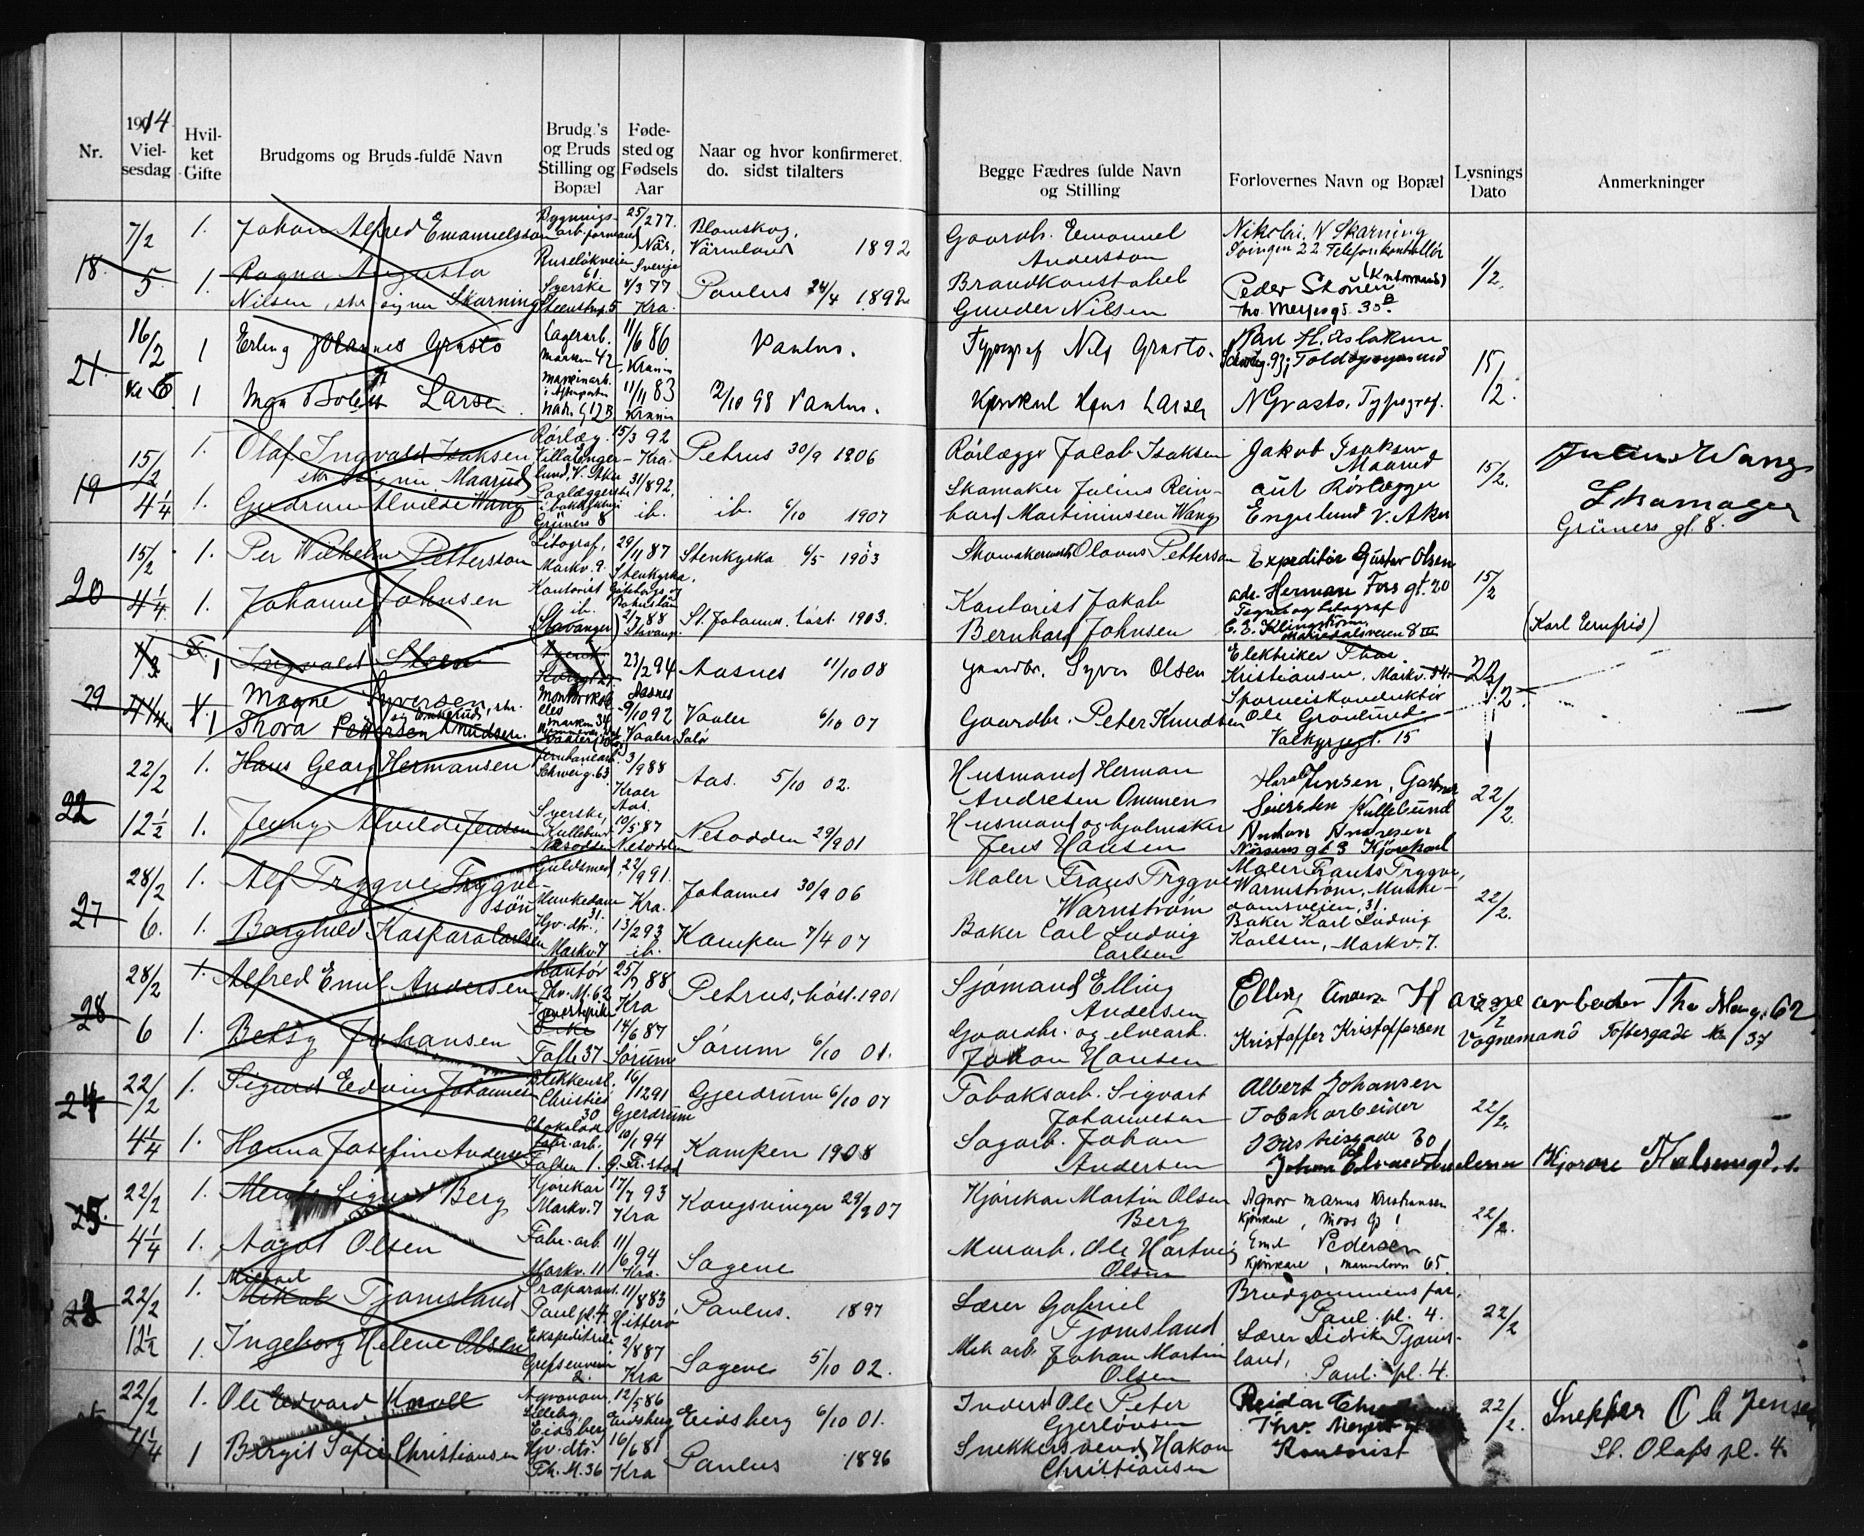 1914
Nr.
Viel-
sesdag
Hvil-
ket
Gifte
Brudgoms og Bruds fulde Navn
Brudg.'s
og Bruds
Stilling og
Bopæl
Føde-
sted og
Fødsels
Aar
Naar og hvor konfirmeret.
do. sidst tilalters
Begge Fædres fulde Navn
og Stilling
Forlovernes Navn og Bopæl
Lysnings
Dato
Anmerkninger
18.
7/2
5.
1.
Johan Alfred Emanuelsson
Bygnings-
arb. formand
Ruseløkveien
61.
25/2 77.
Sverige
Blomskog,
Värmland 1892
Gaardb. Emanuel
Andersson
Nikolai N Skarning
Svingen 22 Telefonkontrollør
1/2.
1.
Ragna Augusta
Nilsen, skr. sig nu Skarning
Syerske
Steenstrup. 5
4/3 77
Kra.
Paulus 24/4 1892
Brandkonstabel
Gunder Nilsen
Peder
Tho. Meyersgt. 30 B
21
16/2
Kl 6
1
Erling Johannes Grasto
Lagerarb.
Marken 42
11/6 86
Krania
Paulus.
Typograf Nils Grasto.
Karl H. Aslaksen
15/2.
1
Larsen
Maskinarb.
11/11 83
Krania
2/10 98 Paulus.
Kjørekarl Hans Larsen
N Grasto, Typograf.
19
15/2
4 1/4
1.
Olaf Ingvald Isaksen
skr. sig nu Maarud
Rørlæg.
Villa Enger-
lund, V. Aker
15/3 92
Kra.
Petrus 30/9 1906
Rørlægger Jacob Isaksen
Jakob Isaksen
Maarud
15/2.
Julius Wang
Skomager
Grüners gt 8.
1.
Gudrun Alvilde Wang
Grüners 8
31/1 892.
ib.
ib. 6/10 1907
Skomaker Julius Rein-
hard Martiniussen Wang
aut Rørlegger
Engerlund V. Aker
20
15/2
4 1/4
1.
Per Wilhelm Pettersson
Litograf,
Markv. 9.
29/11 87
Stenkyrka,
Göteborgs og
Bohuslän
Stenkyrka 6/5 1903
Skomakermester Olavus Petterson
Expeditør Gustav Olsen
adr. Herman Foss gt. 20
15/2
1.
Johanne Johnsen
Kontorist
ib.
(Stavanger)
2/7 88
Stavang.
St. Johannes. høst. 1903.
Kontorist Jakob
Bernhard Johnsen
Tegner og litograf
C. E. Klingström
Maridalsveien 8 III
(Karl Ernfrid)
29
1
Ingvald Steen
23/2 94
Aasnes
Aasnes 11/10 08
Gaardbr. Syver Olsen
Elektriker Thor
Kristiansen, Markv. 34.
Magne Syversen, skr.
sig
1
Thora Pettersen Knudsen.
Marken 34
9/10 92
Vaaler
Vaaler 6/10 07
Solør
Gaardbr. Peter Knudsen
Sporveiskonduktør
Ole Grønlund
Valkyrjegt. 15
22
22/2
12 1/2
1.
Hans Georg Hermansen
Jernbanearb.
Schweig. 63.
3/9 88
Kroer
Aas.
Aas. 5/10 02.
Husmand Herman
Andresen Ommen
Harald Jensen, Gartner
22/2.
1.
Jenny Alvilde Jensen
Syerske,
Kullebund
Nesodden
10/5 87
Nesodden
Nesodden 29/9 01
Husmand og hjulmaker
Jens Hansen
Anton Andresen
Kjørekarl
27
28/2
6.
1.
Alf Tryggve Tryggve-
søn
Guldsmed
Munkedam.
31.
22/9 91.
Kra.
Johannes 30/9 06
Maler Frans Tryggve
Warnstrøm
Maler Frants Tryggve,
Warnstrøm, Munke-
damsveien, 31.
22/2.
1.
Borghild Kaspara Carlsen
Hjv. dtr.,
Markv. 7
13/2 93
ib.
Kampen 7/4 07
Baker Carl Ludvig
Carlsen
Baker Karl Ludvig
Karlsen, Markv. 7.
28
28/2
6
1.
Alfred Emil Andersen
Thv. M. 62
25/7 88
Kra
Petrus, høst. 1901
Sjømand Elling
Andersen
Elling Anders Haggearbeder Tho Mayg. 62
1.
Betsy Johansen
Tofte 37
14/6 87
Sørum
Sørum 6/10 01.
Gaardbr. og elvearb.
Johan Hansen
Kristoffer Kristoffersen Vognmand Toftesgade No 37
24
22/2
4 1/4
1.
Sigurd Edvin Johannesen
Blikkensl.
Christies
30
16/11 291
Gjerdrum
Gjerdrum 6/10 07
Tobaksarb. Sigvart
Johannesen
Albert Johansen
Tobakarbeider
22/2.
1.
Hanna Josefine Andersen
Chokolade
fabr. arb.
10/1 94
Fr. stad
Kampen 1908
Sagarb. Johan
Andersen
Johan
25.
22/2
4 1/4
1.
Sigurd Berg
Kjørekar
Markv. 7
17/7 93
Kra
Kongsvinger 29/9 07
Kjørekar Martin Olsen
Berg
Agnor Manus Kristiansen
Kjørekar, Moss g 1
22/2.
1.
Aagot Olsen
Fabr. arb.
Markv. 11
11/6 94
Kra.
Sagene
Murarb. Ole Hartvig
Olsen
Emil Pedersen
Kjørekare, 65.
23
22/2
12 1/2
1.
Michael
Mikal Tjomsland
Præparant.
Paul. pl. 4.
11/8 83
Hitterø
Paulus. 1897
Lærer Gabriel
Tjomsland
Brudgommens far,
Paul. pl. 4.
22/2
1.
Ingeborg Helene Olsen
Ekspeditrice
Grefsenveien
2.
2/8 87
Kra
Sagene 5/10 02.
Mek arb. Johan Martin
Olsen
Lærer Didrik Tjoms-
land,
Paul. pl. 4.
22/2
4 1/4
1.
Ole Edvard Knoll
Agronom.
Eidsberg
12/5 86
Eidsberg
Eidsberg 6/10 01.
Inders Ole Peter
Gjerløvsen
Reidar
Thv. Meyers gt
Kontorist
22/2.
Snekker O Jensen
St. Olafs pl. 4.
1
Birgit Sofie Christiansen
Hjv. dtr.
Th. M. 36
16/6 81
Kra
Paulus 1896
Snekkersvend Hakon
Christiansen